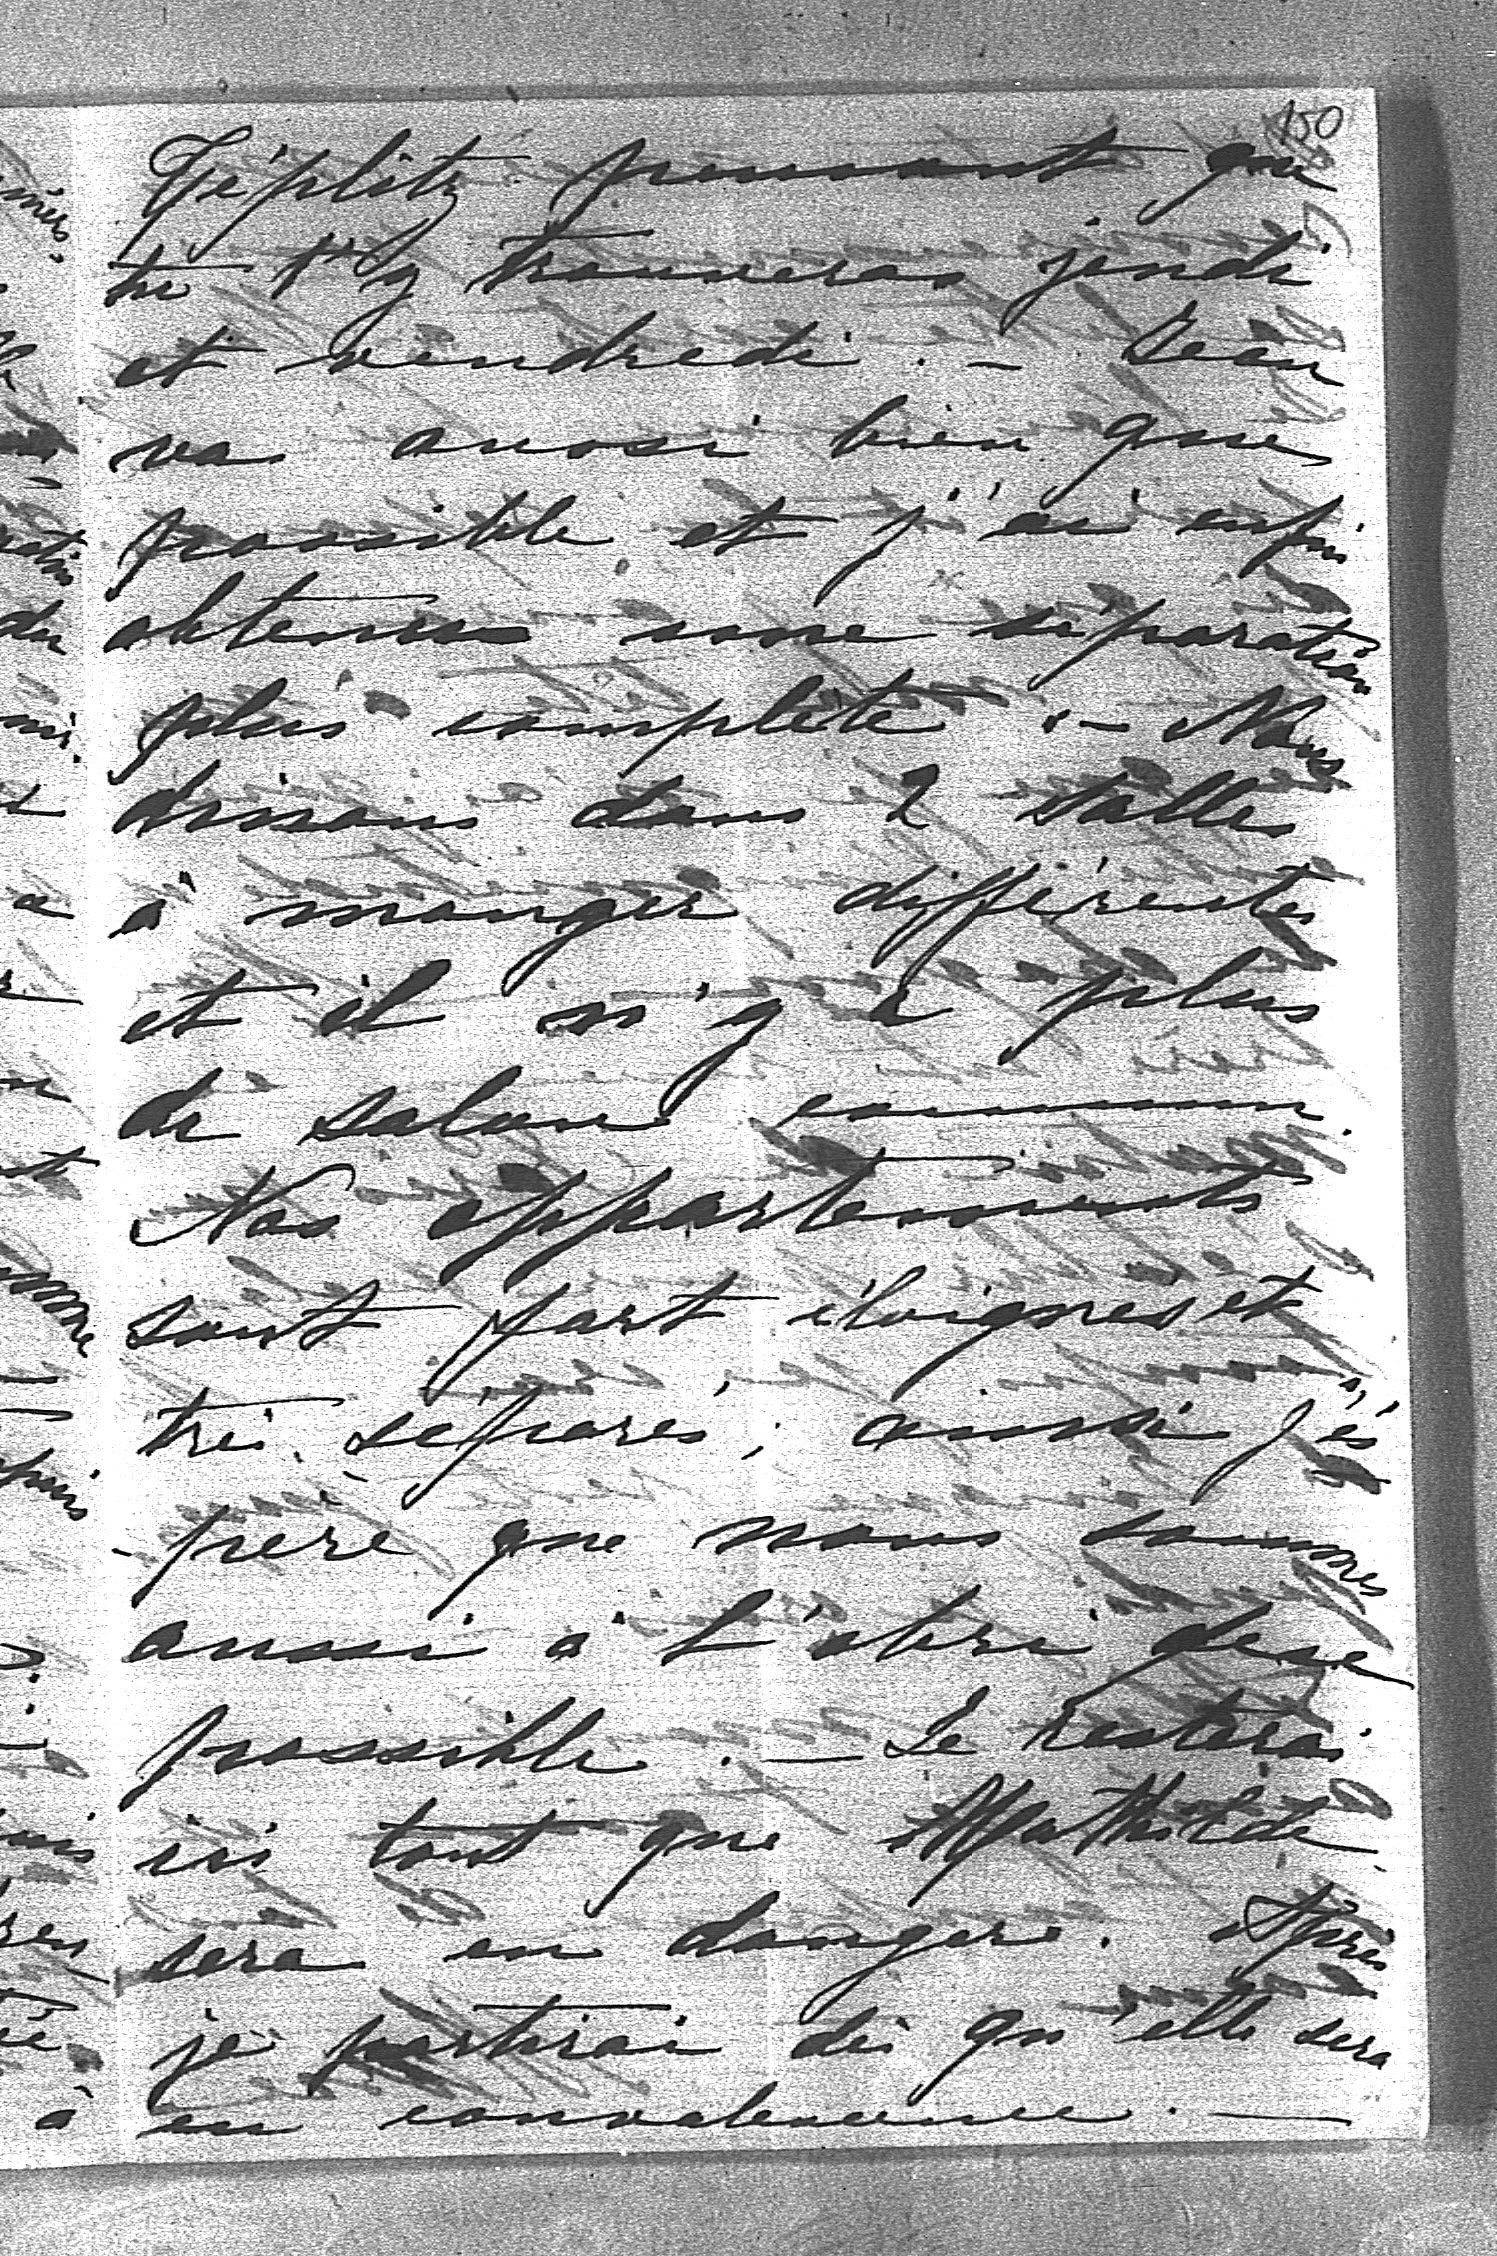 150
Téplitz pensant que
tu t'y trouveras jeudi
et vendredi. — Jean
va aussi bien que
possible et j'ai enfin
obtenu une séparation
plus complète. — Nous
dinons dans 2 salles
à manger différentes
et il n'y a plus
de salon commun.
Nos appartements
sont fort éloignés et
très séparés; aussi j'es
-père que nous sommes
aussi à l'abri que
possible. — Je resterai
ici tant que Mathilde
sera en danger. Après
je partirai dès qu'elle sera
en convalescence. —